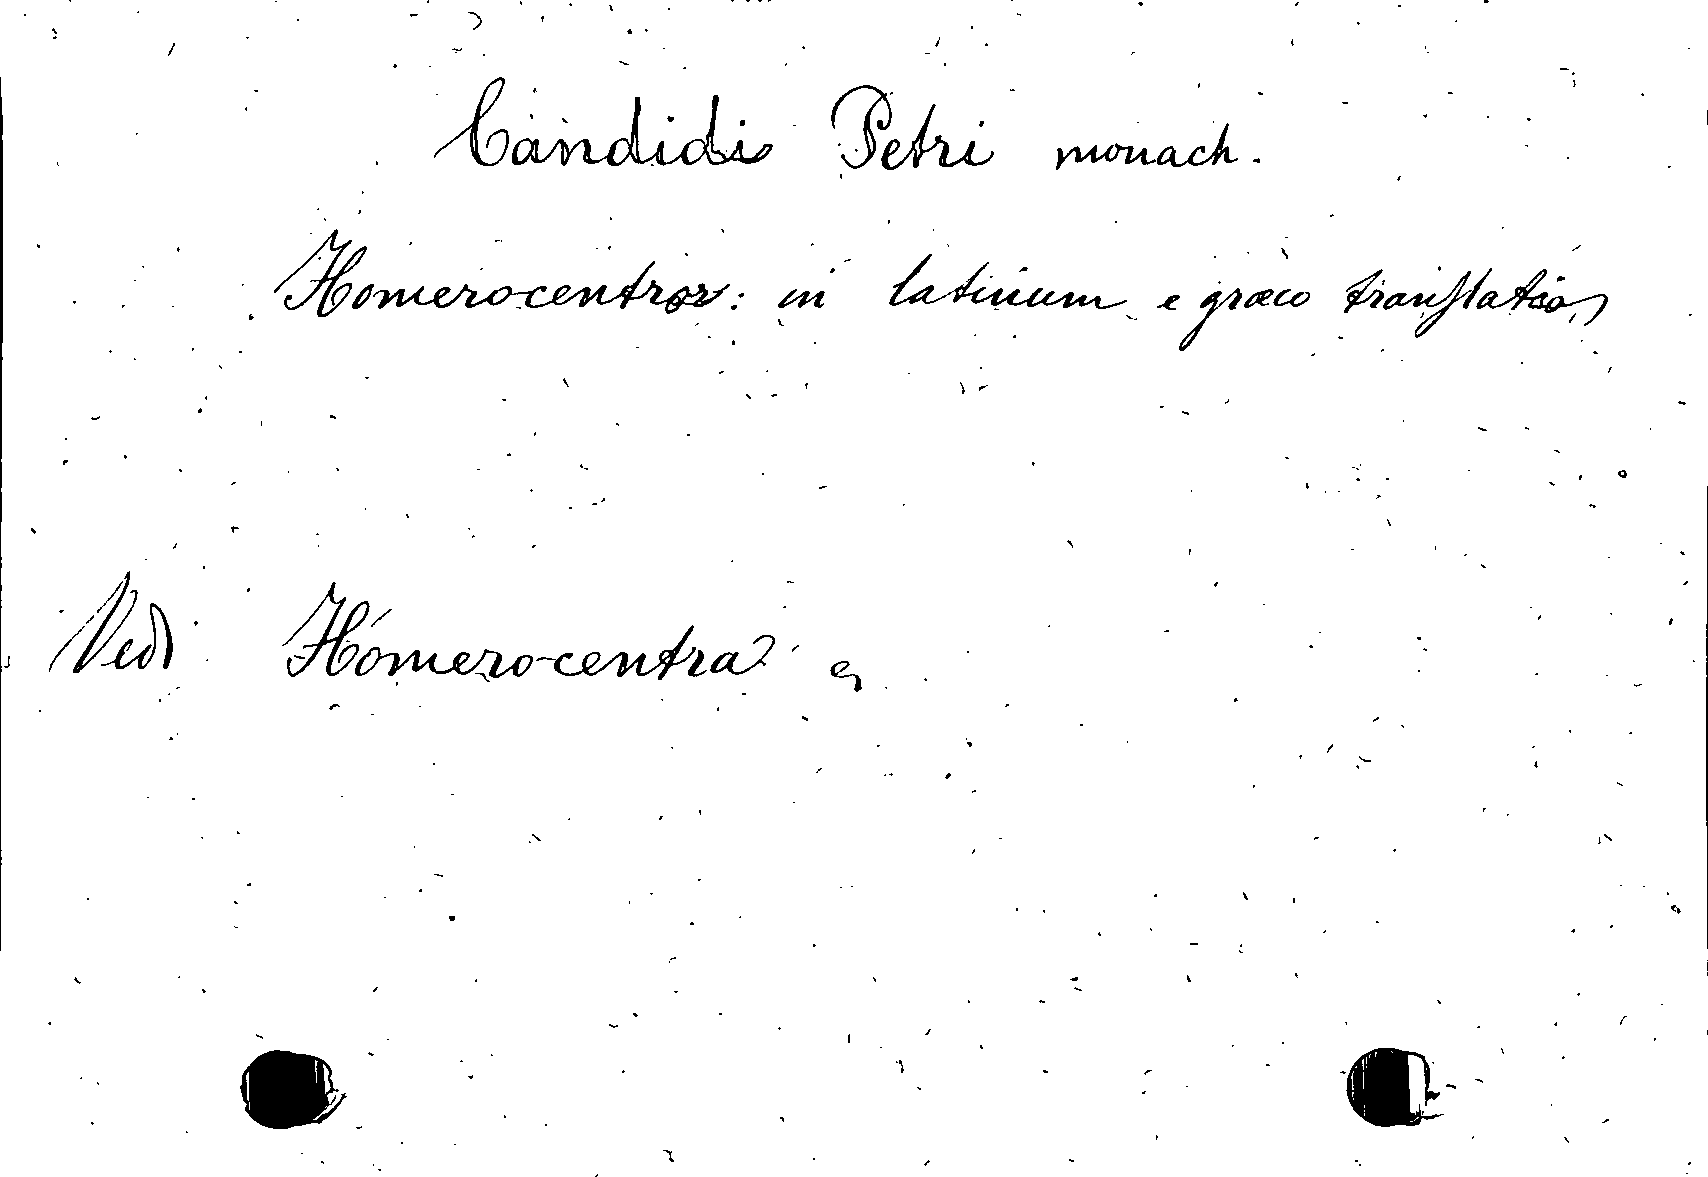 Candidi Petri monach.
Homerocentron: in latinum e græco translatio,
Vedi Homerocentra